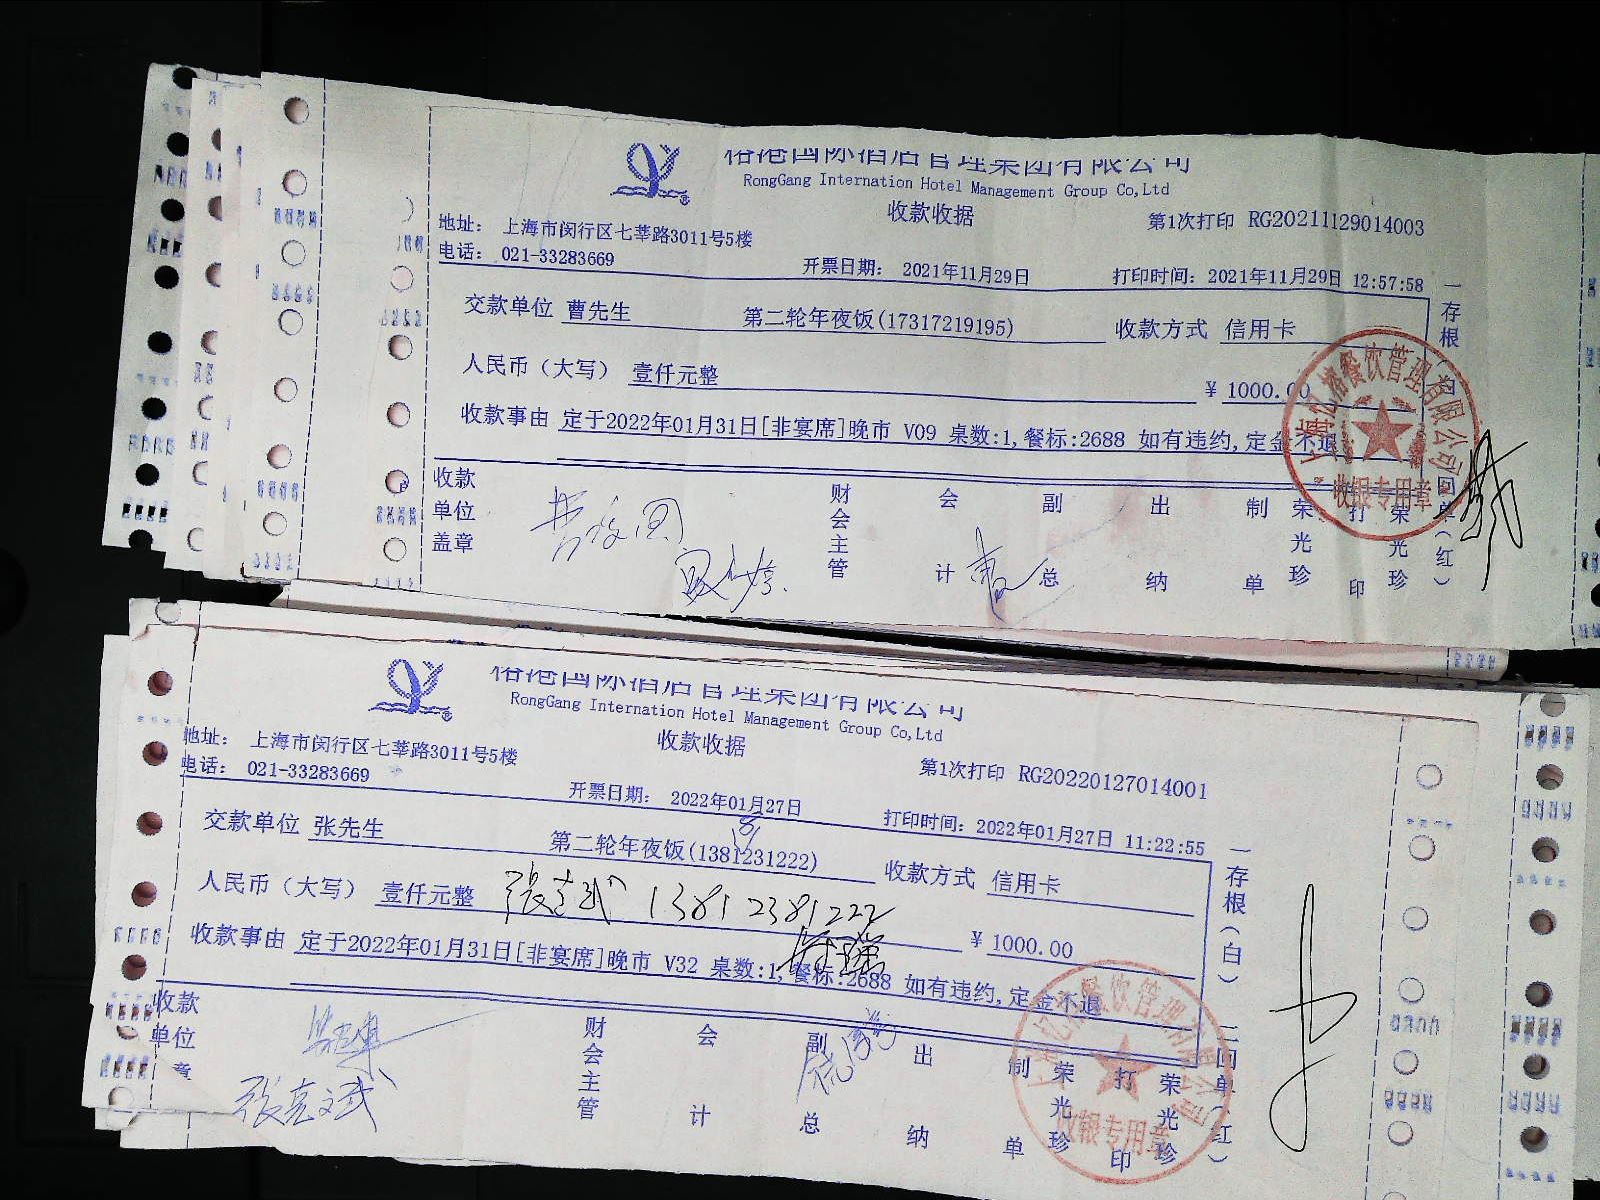 国际酒店管理集团有限公司
RongGang Internation Hotel Management Group Co,Ltd
收款收据
第1次打印 RG20211129014003
地址： 上海市闵行区七莘路3011号5楼
电话： 021-33283669
开票日期： 2021年11月29日
打印时间：2021年11月29日 12:57:58
交款单位 曹先生 第二轮年夜饭(17317219195) 收款方式 信用卡
人民币（大写） 壹仟元整 ¥ 1000.00
收款事由 定于2022年01月31日[非宴席]晚市 V09 桌数:1,餐标:2688 如有违约,定金不退
一存根
回单（红）
收款单位盖章
财会主管
会计
副总
出纳
制单
荣光珍
打印
荣光珍
餐饮管理有限公司
收银专用章
国际酒店管理集团有限公司
RongGang Internation Hotel Management Group Co,Ltd
收款收据
第1次打印 RG20220127014001
地址： 上海市闵行区七莘路3011号5楼
电话： 021-33283669
开票日期： 2022年01月27日
打印时间：2022年01月27日 11:22:55
交款单位 张先生 第二轮年夜饭(1381231222) 收款方式 信用卡
8
人民币（大写） 壹仟元整 ¥ 1000.00
13812381222
收款事由 定于2022年01月31日[非宴席]晚市 V32 桌数:1,餐标:2688 如有违约,定金不退
一存根（白）
二回单（红）
收款单位章
张亮斌
财会主管
会计
副总
出纳
制单
荣光珍
打印
荣光珍
餐饮管理有限公司
收银专用章